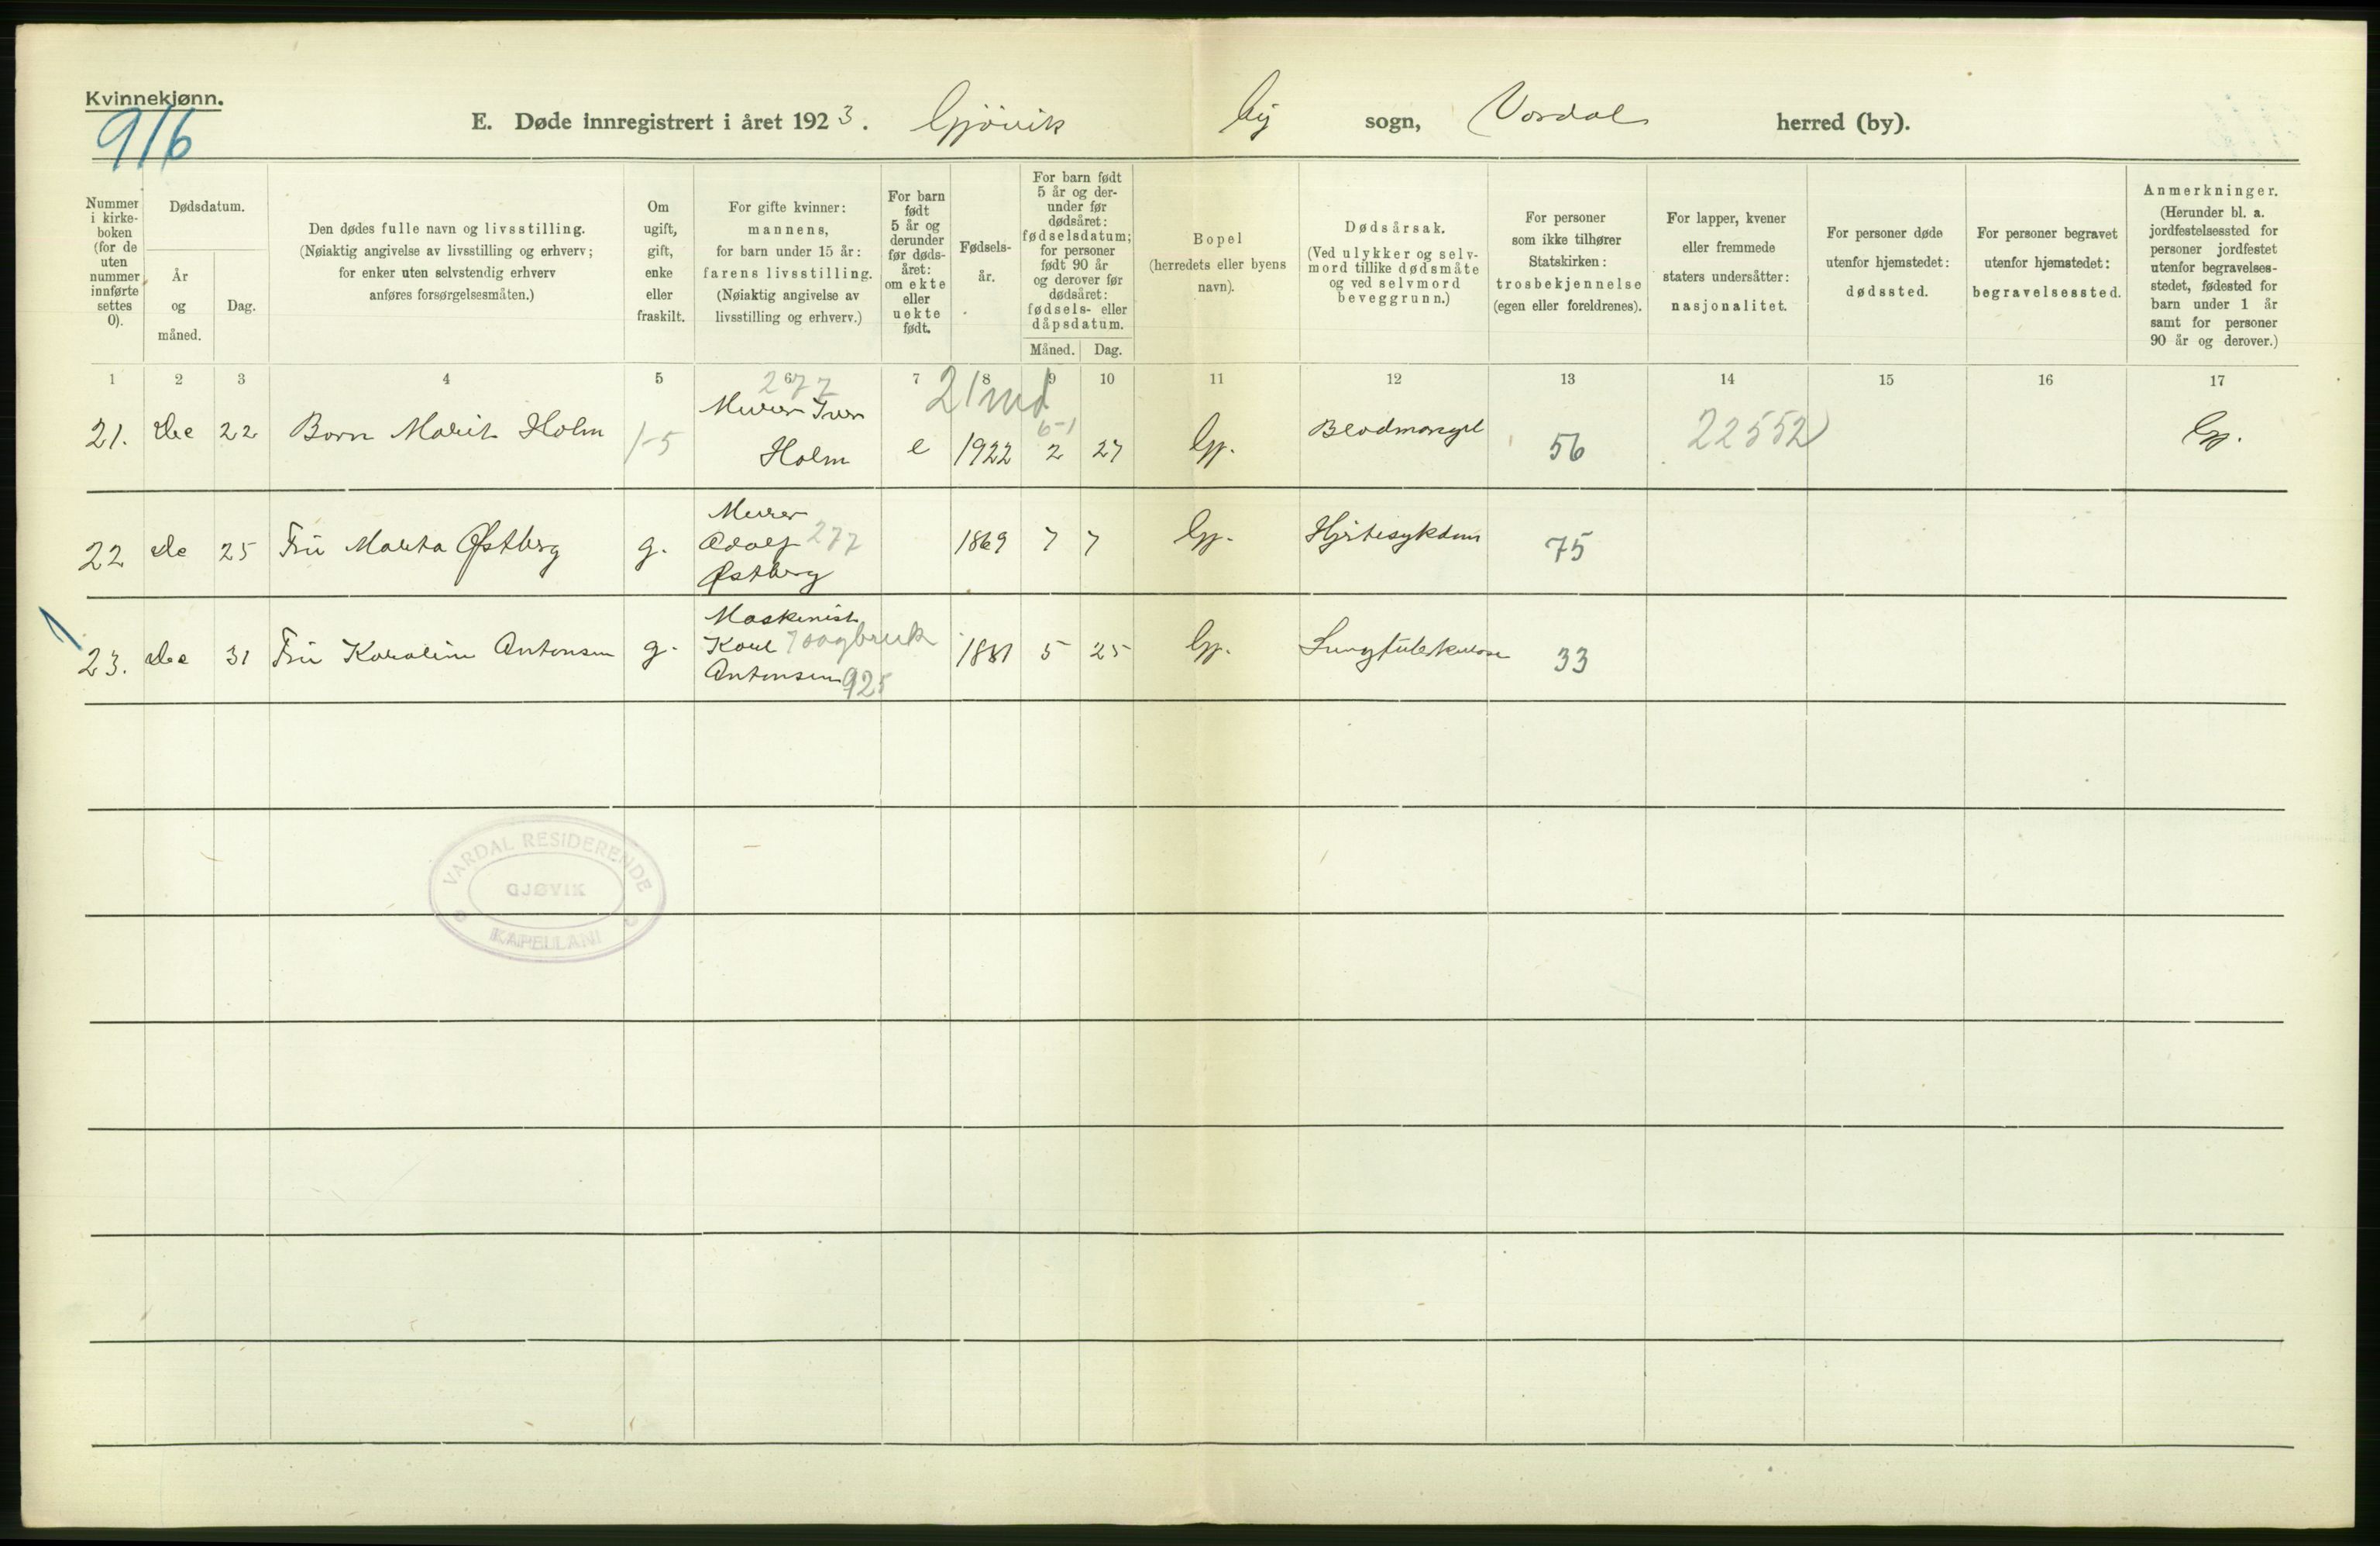 Kvinnekjønn.
916
E. Døde innregistrert i året 1923. Gjövik by sogn, Vardal herred (by).
Nummer i kirke-boken (for de uten nummer innførte settes 0).
Dødsdatum.
År og måned.
Dag.
Den dødes fulle navn og livsstilling.
(Nøiaktig angivelse av livsstilling og erhverv;
for enker uten selvstendig erhverv
anføres forsørgelsesmåten.)
Om ugift, gift, enke eller fraskilt.
For gifte kvinner:
mannens,
for barn under 15 år:
farens livsstilling.
(Nøiaktig angivelse av
livsstilling og erhverv.)
For barn født 5 år og derunder før døds-året: om ekte eller uekte født.
Fødsels-år.
For barn født 5 år og der-under før dødsåret: fødselsdatum; for personer født 90 år og derover før dødsåret: fødsels- eller dåpsdatum.
Måned. Dag.
Bopel
(herredets eller byens
navn).
Dødsårsak.
(Ved ulykker og selv-
mord tillike dødsmåte
og ved selvmord
beveggrunn.)
For personer
som ikke tilhører
Statskirken:
trosbekjennelse
(egen eller foreldrenes).
For lapper, kvener
eller fremmede
staters undersåtter:
nasjonalitet.
For personer døde
utenfor hjemstedet:
dødssted.
For personer begravet
utenfor hjemstedet:
begravelsessted.
Anmerkninger.
(Herunder bl. a.
jordfestelsessted for
personer jordfestet
utenfor begravelses-
stedet, fødested for
barn under 1 år
samt for personer
90 år og derover.)
1 2 3 4 5 6 7 8 9 10 11 12 13 14 15 16 17
277 21 md
21. Dec 22 Barn Marit Holm 1-5 Murer Iver Holm e 1922 2 27 Gj. Blodmangel 56 22552 Gj.
22 De 25 Fru Marta Østberg g. Murer Adolf Østberg 277 1869 7 7 Gj. Hjertesykdom 75
23. Dec 31 Fru Karoline Antonsen g. Maskinist Karl Antonsen 925 1881 5 25 Gj. Lungetuberkulose 33
VARDAL RESIDERENDE
GJØVIK
KAPELLANI